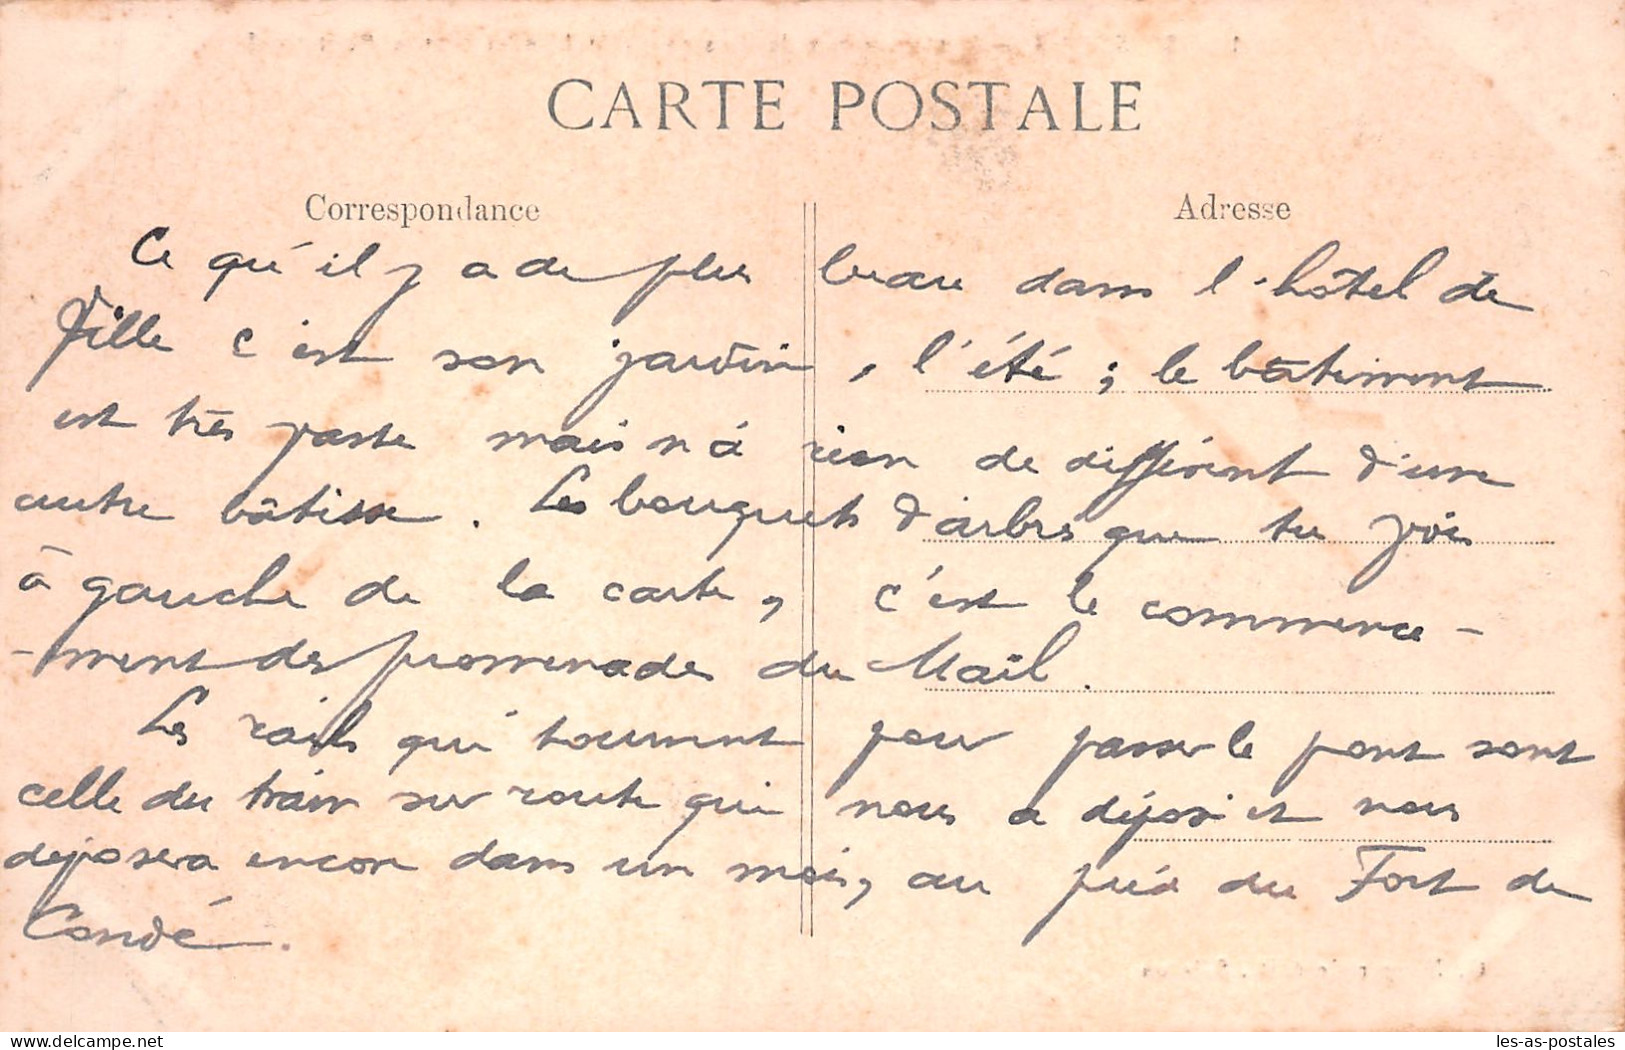 CARTE POSTALE
Correspondance
Adresse
Ce qu'il y a de plus beau dans l'hôtel de
Ville c'est son jardin, l'été ; le bâtiment
est très vaste mais n'à rien de différent d'une
autre bâtisse. Les bouquets d'arbres que tu vois
à gauche de la carte, c'est le commence-
-ment des promenades du Mail.
Les rails qui tournent pour passer le pont sont
celle du train sur route qui nous a déposé et nous
deposera encore dans un mois, au pied du Fort de
Condé.
delcampe.net
les-as-postales